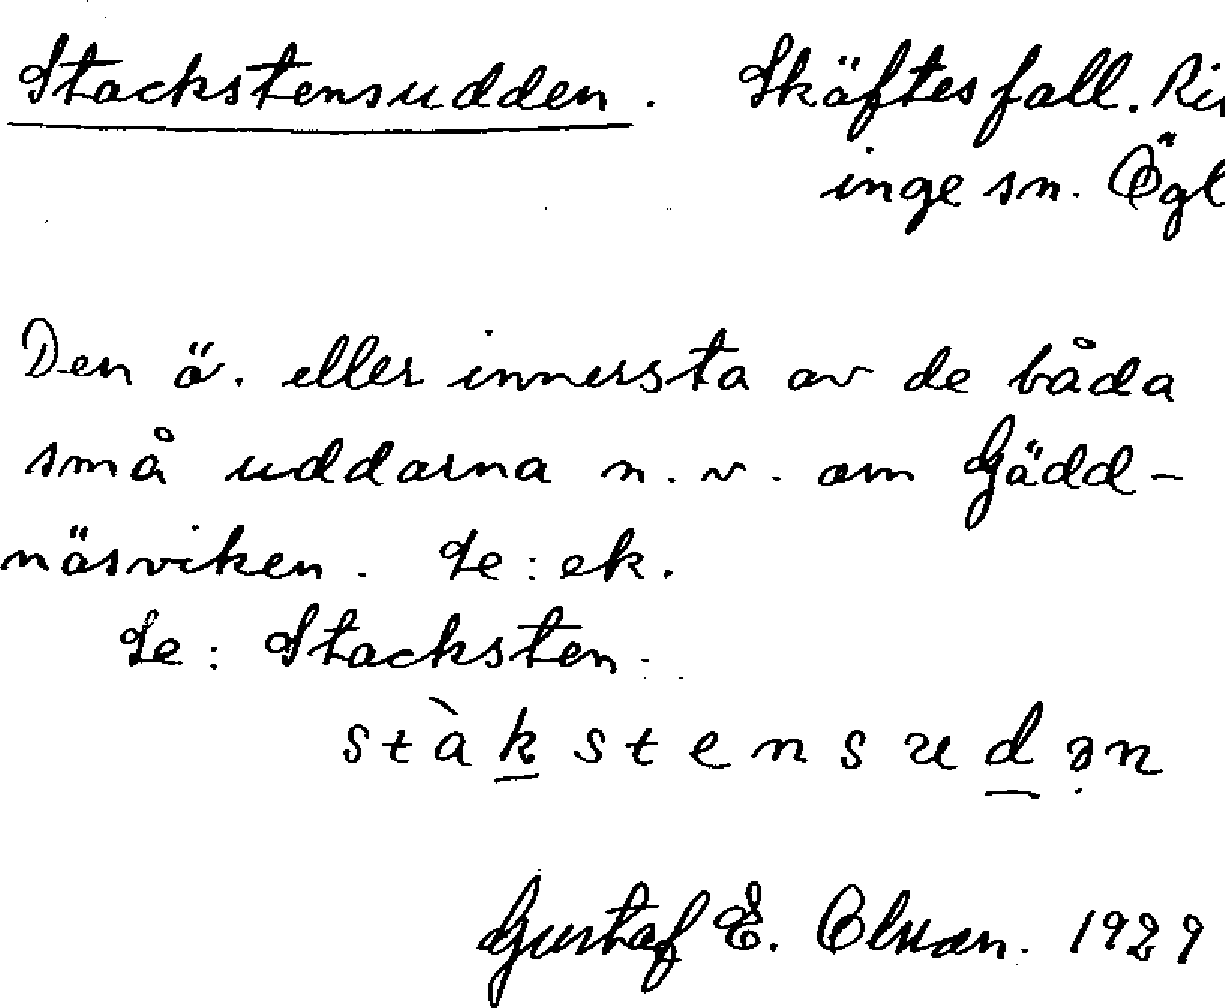 Stackstensudden. Skäftesfall. Rin
inge sn. Ögl
Den ö. eller innersta av de båda
små uddarna n.v. om Gädd-
näsviken. Se: ek.
Se: Stacksten.
stàkstensudən
Gustaf E. Olsson. 1929